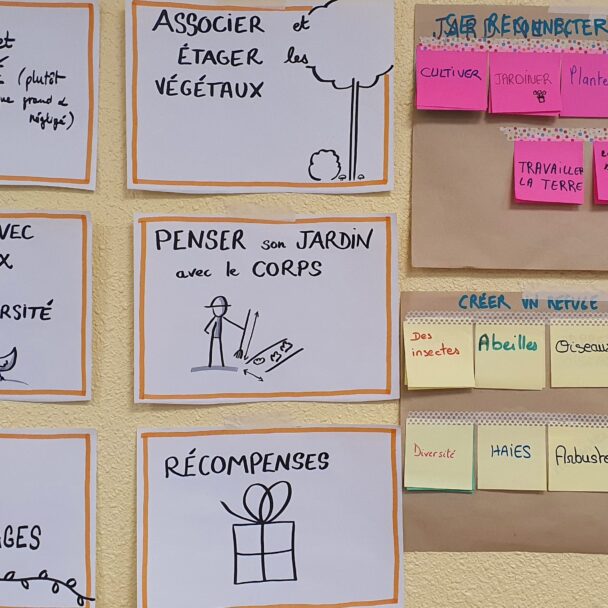 et
(plutôt
grand &
négligé)
ASSOCIER et
ÉTAGER les
VÉGÉTAUX
SE RECONNECTER
CULTIVER
JARDINER
Plante
TRAVAILLER
LA TERRE
VEC
X
RSITÉ
PENSER son JARDIN
avec le CORPS
CRÉER UN REFUGE
Des
insectes
Abeilles
Oiseaux
Diversité
HAIES
Arbuste
GES
RÉCOMPENSES